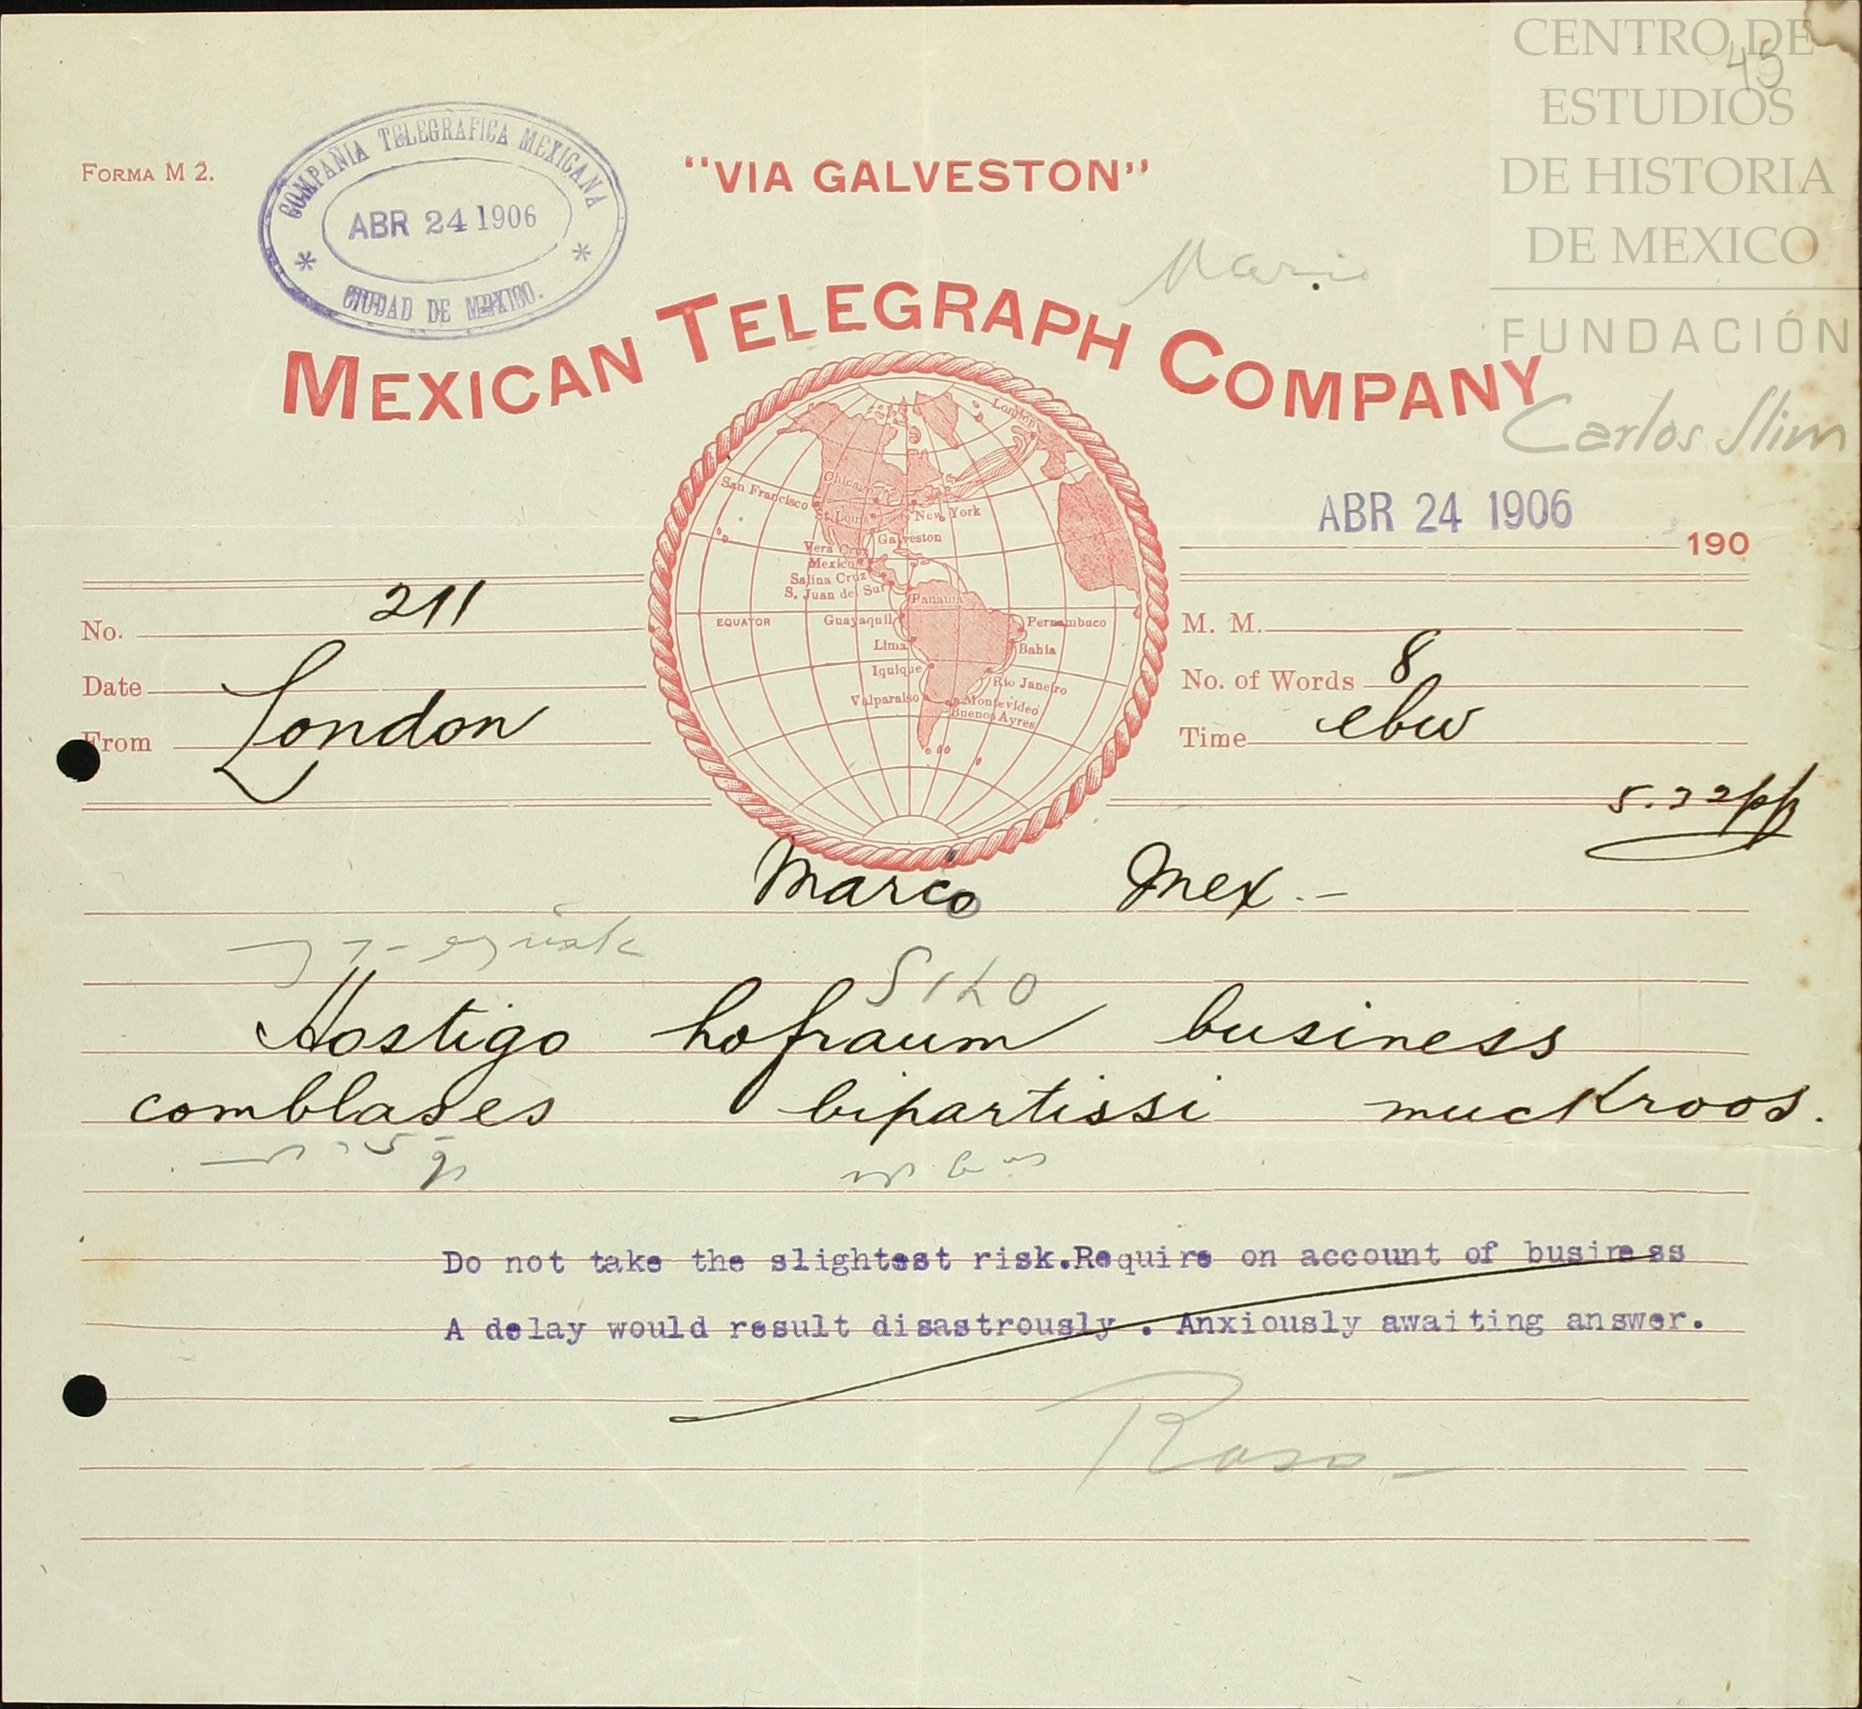 CENTRO DE
ESTUDIOS
DE HISTORIA
DE MEXICO
FUNDACIÓN
Carlos Slim
45
FORMA M 2.
COMPAÑIA TELEGRAFICA MEXICANA
ABR 24 1906
CIUDAD DE MEXICO.
"VIA GALVESTON"
Mario
MEXICAN TELEGRAPH COMPANY
London
Chicago
San Francisco
St. Louis
New York
Galveston
Vera Cruz
Mexico
Salina Cruz
S. Juan del Sur
Panama
EQUATOR
Guayaquil
Pernambuco
Lima
Bahia
Iquique
Rio Janeiro
Valparaiso
Montevideo
Buenos Ayres
ABR 24 1906 190
No. 211
Date
From London
M. M.
No. of Words 8
Time ebw
Marco Mex. -
Hostigo hofraum business
comblases bipartissi muckroos.
Do not take the slightest risk.Require on account of business
A delay would result disastrously . Anxiously awaiting answer.